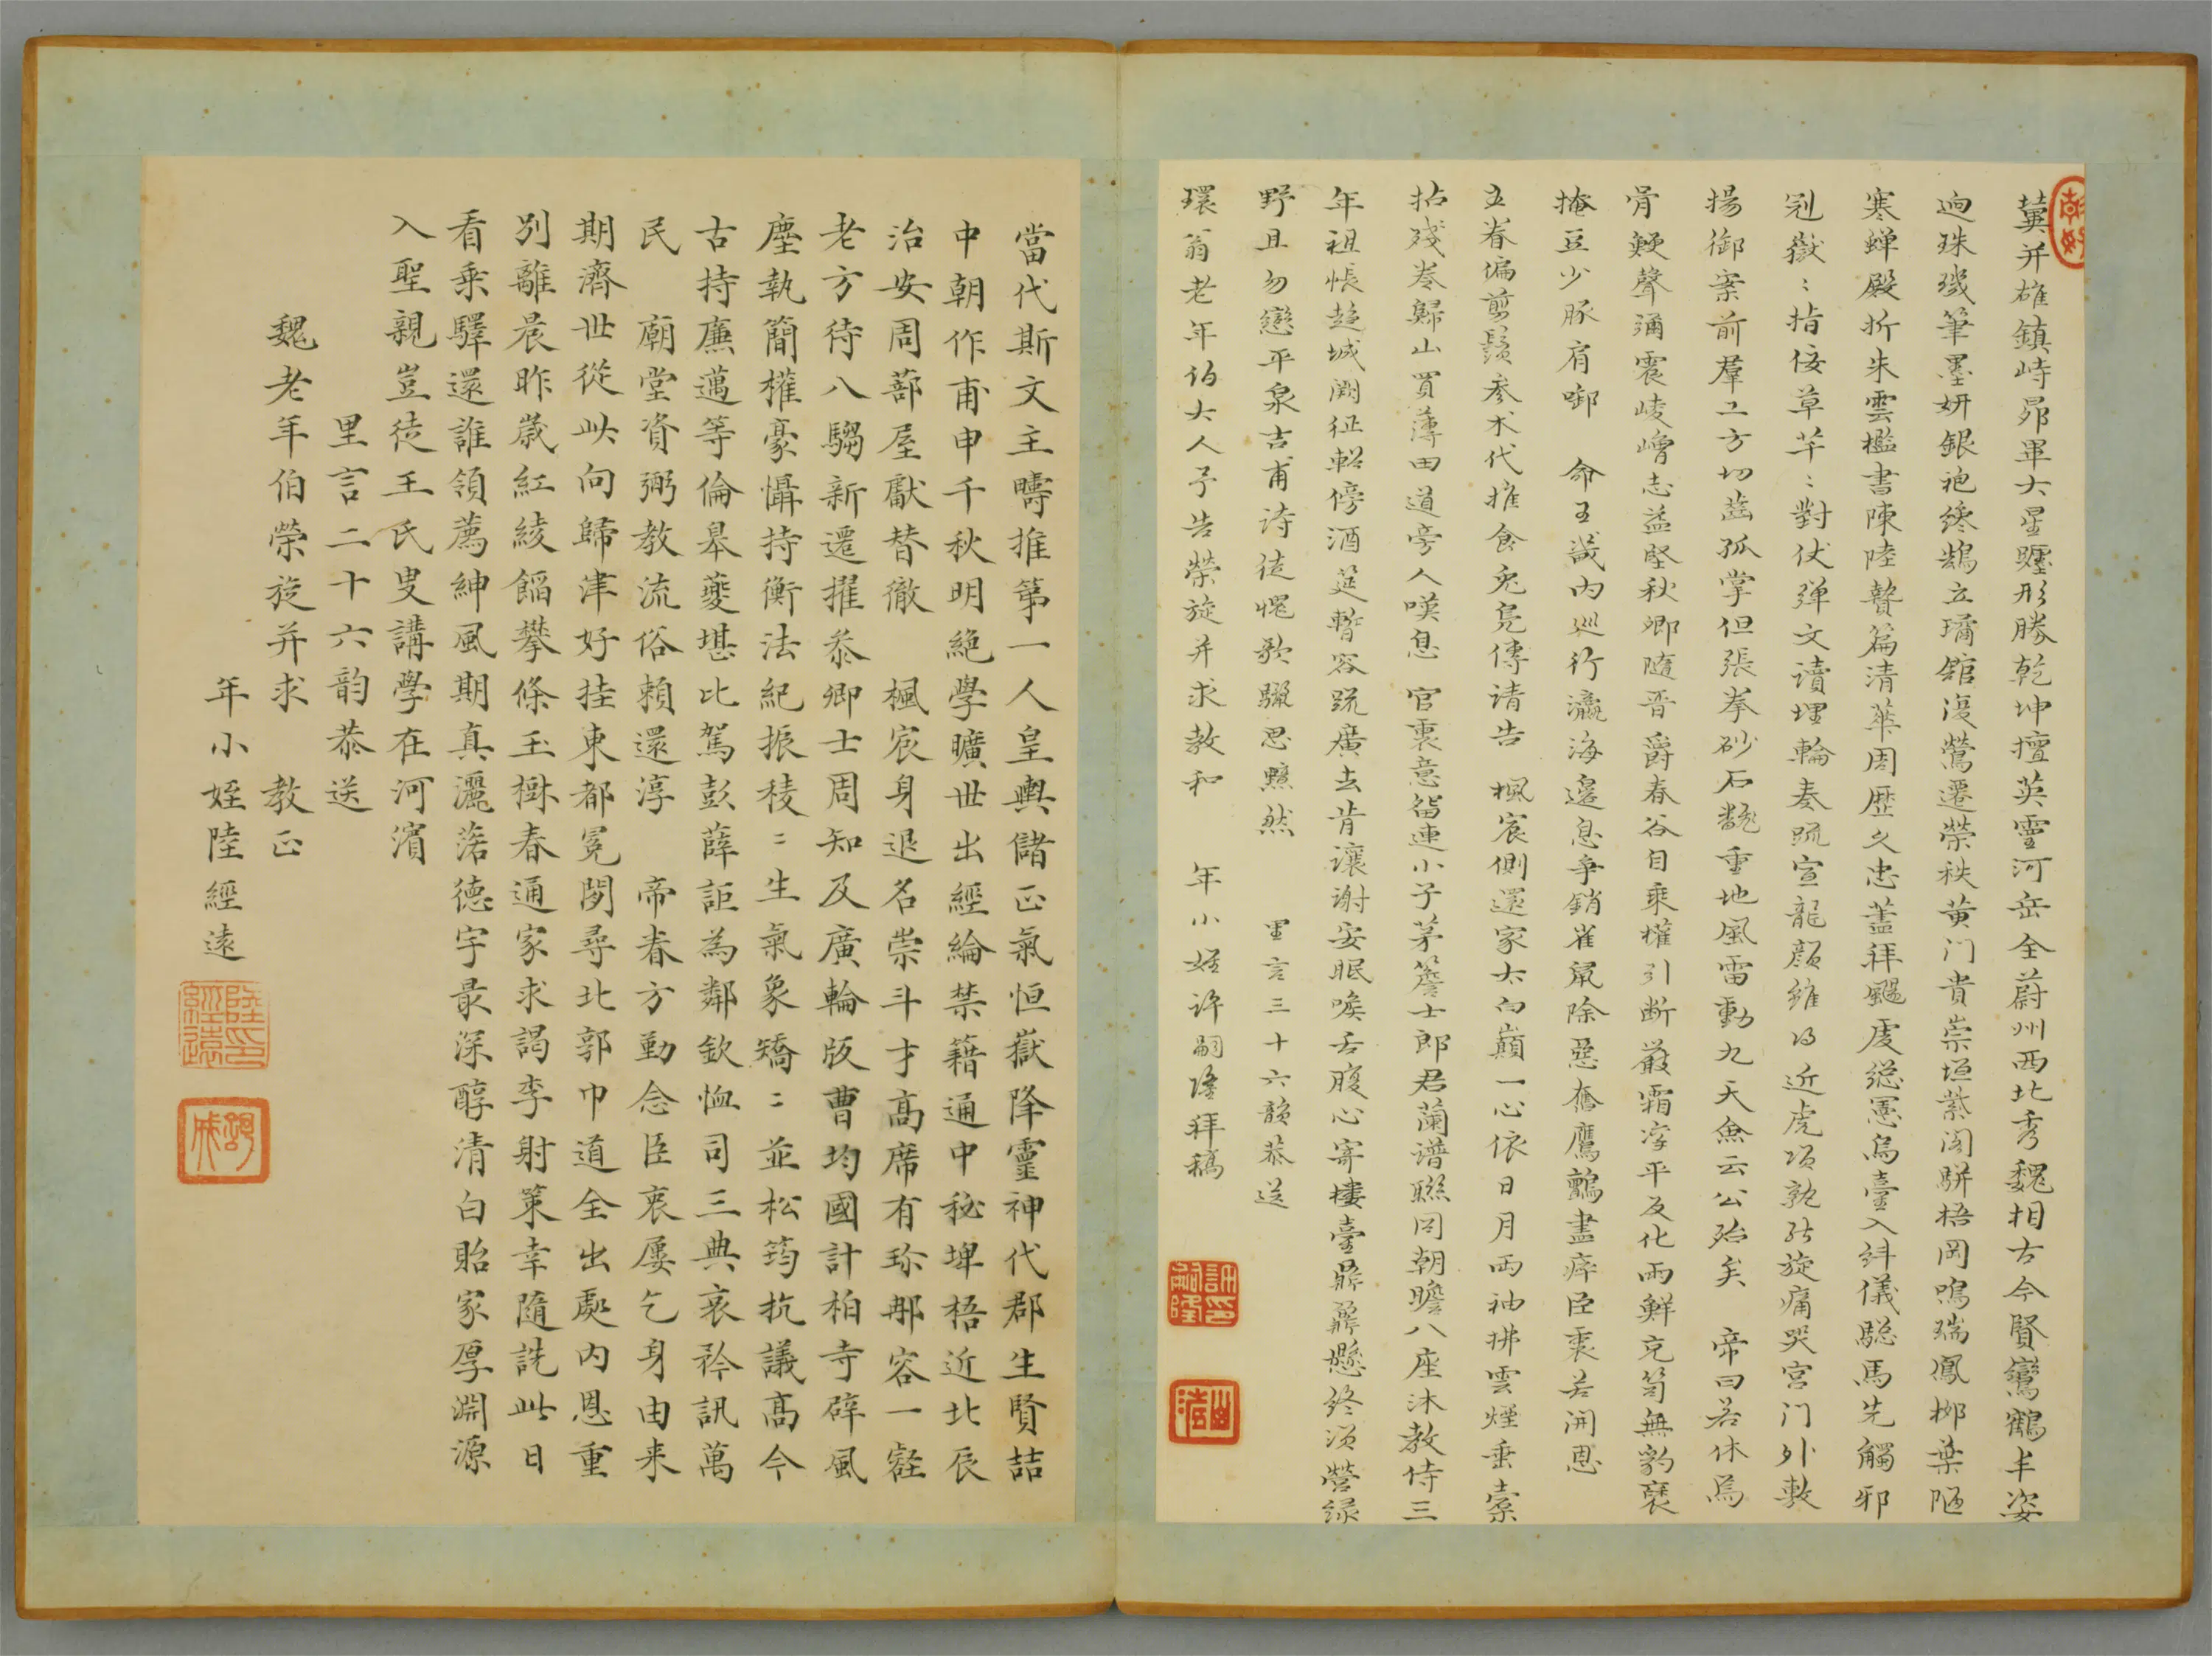 冀并雄鎮峙昴畢大星躔形勝乾坤擅英靈河岳全蔚州西北秀魏相古今賢鸞鶴丰姿
逈珠璣筆墨妍銀袍纔鵠立璚舘漫鶯遷榮秩黃门貴崇垣紫閣駢梧岡鳴瑞鳳柳葉陋
寒蟬殿折朱雲檻書陳陸贄篇清華周歷久忠藎拜颺虔總憲烏臺入紏儀驄馬先觸邪
冠嶽〻指佞草芊〻對仗彈文讀埋輪奏疏宣龍顏雖得近虎項孰能旋痛哭宮门外敷
揚御案前羣工方切齒孤掌但張拳砂石翻重地風雷動九天僉云公殆矣 帝曰若休焉
骨鯁聲彌震崚嶒志益堅秋卿隨晉爵春谷自乘權引断嚴霜凜平反化雨鮮克笥無豹褎
掩豆少豚肩啣 命王畿内巡行瀛海邊息爭銷雀鼠除惡奮鷹鸇盡瘁臣衷若開恩
立眷偏剪鬚參朮代推食兔鳧傳请告 楓宸側還家太白巔一心依日月兩袖拂雲煙垂橐
拈殘卷歸山買薄田道旁人嘆息 官裏意留連小子茅簷士郎君蘭谱聯同朝瞻八座沐教侍三
年祖悵趂城闕征軺傍酒筵暫容疏廣去肯讓謝安眠喉舌腹心寄樓臺鼎鼐懸终須營绿
野且勿戀平泉吉甫诗徒愧歌驪思黯然 里言三十六韻恭送
環翁老年伯大人予告榮旋并求教和 年小姪许嗣隆拜稿
許印嗣隆
當代斯文主疇推第一人皇輿儲正氣恒嶽降靈神代郡生賢喆
中朝作甫申千秋明絶學曠世出經綸禁籍通中秘埤梧近北辰
治安周蔀屋獻替徹 楓宸身退名崇斗才髙席有珎那容一壑
老方待八騶新遷擢叅卿士周知及廣輪版曹均國計柏寺辟風
塵執簡權豪懾持衡法紀振稜〻生氣象矯〻並松筠抗議髙今
古持廉邁等倫皋夔堪比駕彭薛詎為鄰欽恤司三典哀矜訊萬
民 廟堂資弼教流俗頼還淳 帝眷方勤念臣衷屢乞身由来
期濟世從此向歸津好挂東都冕閱尋北郭巾道全出處内恩重
別離晨昨歲紅綾餡攀條玉樹春通家求謁李射策幸隨詵此日
看乘驛還誰領薦紳風期真灑落德宇最深醇清白貽家厚淵源
入聖親豈徒王氏叟講學在河濱
里言二十六韵恭送
魏老年伯榮旋并求 教正
年小姪陸經遠
陸印經遠